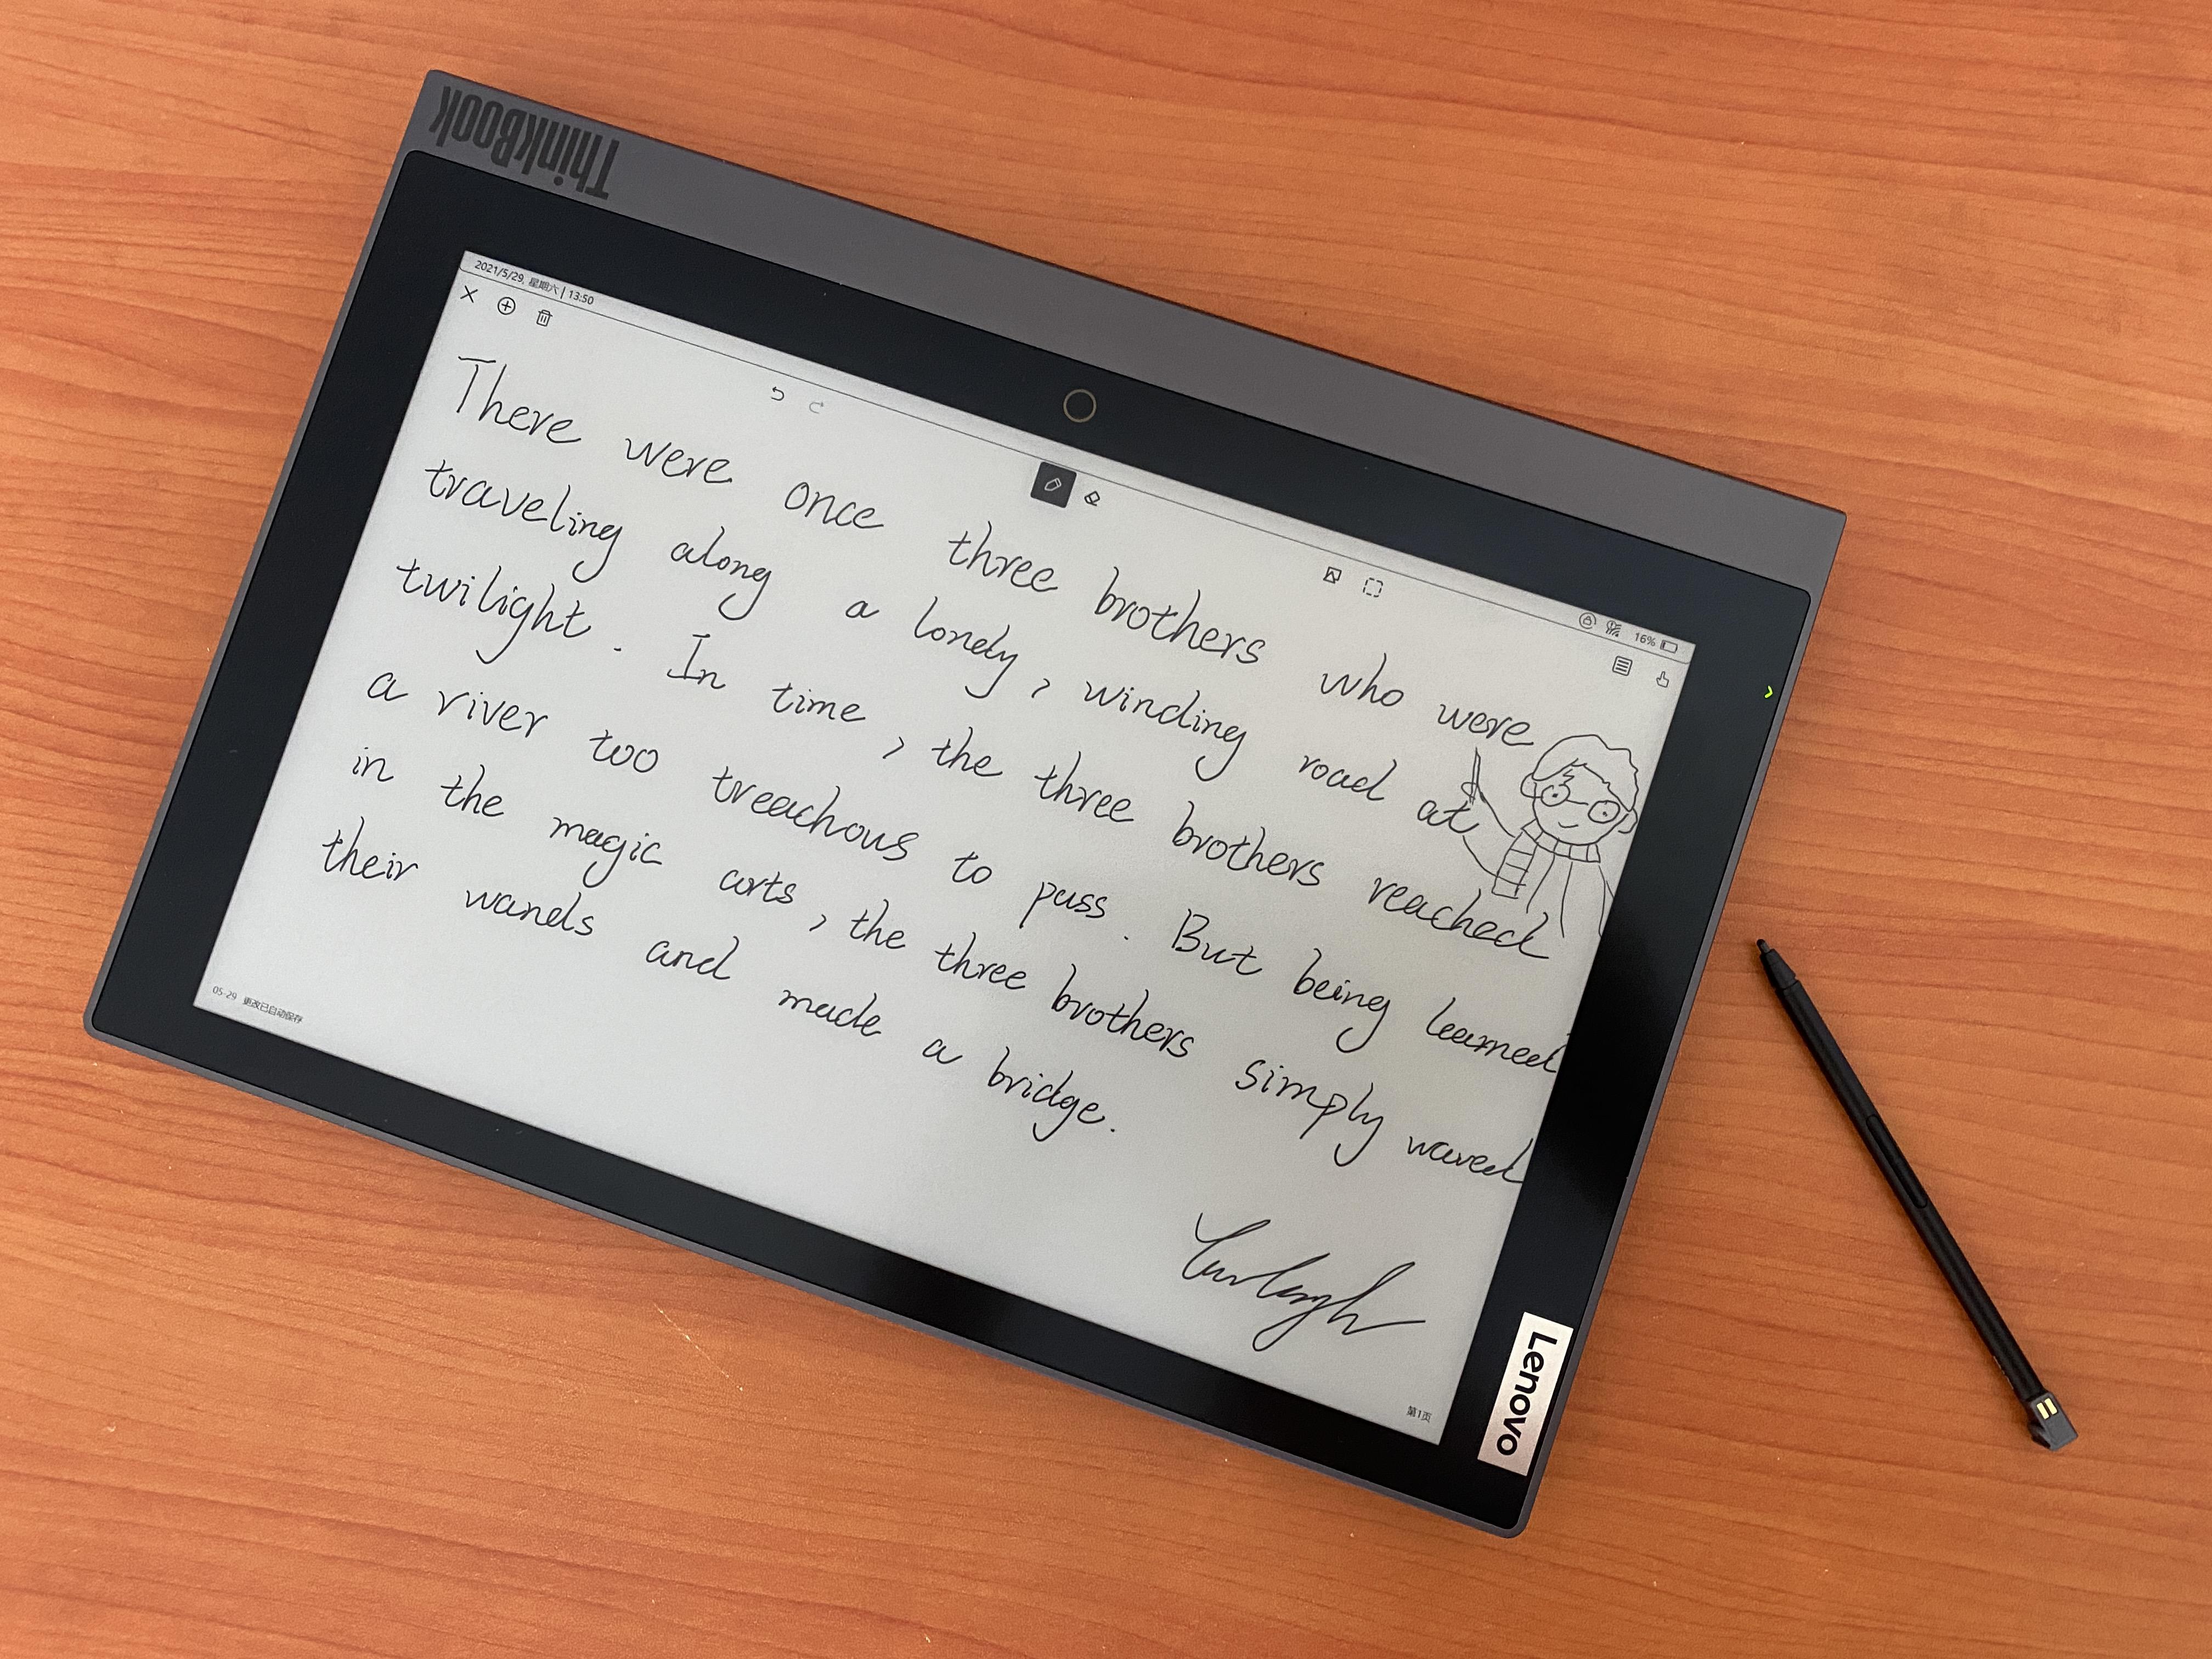 ThinkBook
2021/5/29, 星期六 | 13:50
16%
There were once three brothers who were
traveling along a lonely, winding road at
twilight. In time, the three brothers reached
a river too treachous to pass. But being learned
in the magic arts, the three brothers simply waved
their wands and made a bridge.
05-29 更改已自动保存
第1页
Lenovo